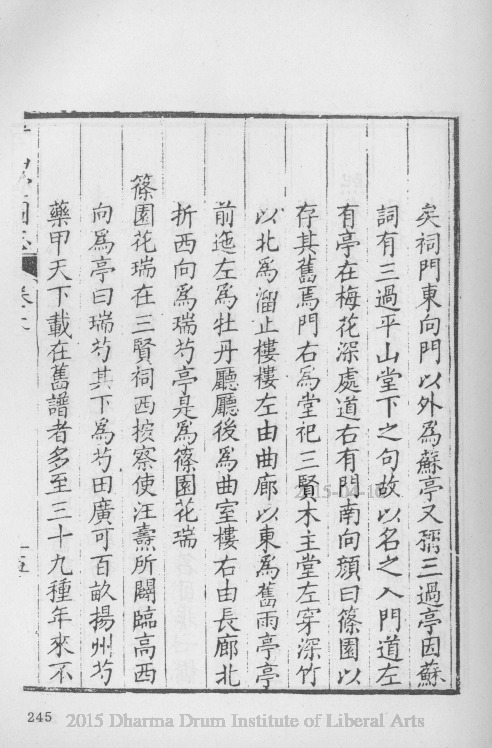 矣祠門東向門以外為蘇亭又稱三過亭因蘇
詞有三過平山堂下之句故以名之入門道左
有亭在梅花深處道右有門南向顔曰篠園以
存其舊焉門右為堂祀三賢木主堂左穿深竹
以北為溜止樓樓左由曲廊以東為舊雨亭亭
前迤左為牡丹廳廳後為曲室樓右由長廊北
折西向為瑞芍亭是為篠園花瑞
篠園花瑞在三賢祠西按察使汪燾所闢臨高西
向爲亭曰瑞芍其下爲芍田廣可百畝揚州芍
藥甲天下載在舊譜者多至三十九種年來不
卷六
十五
2015-04-16
245
2015 Dharma Drum Institute of Liberal Arts